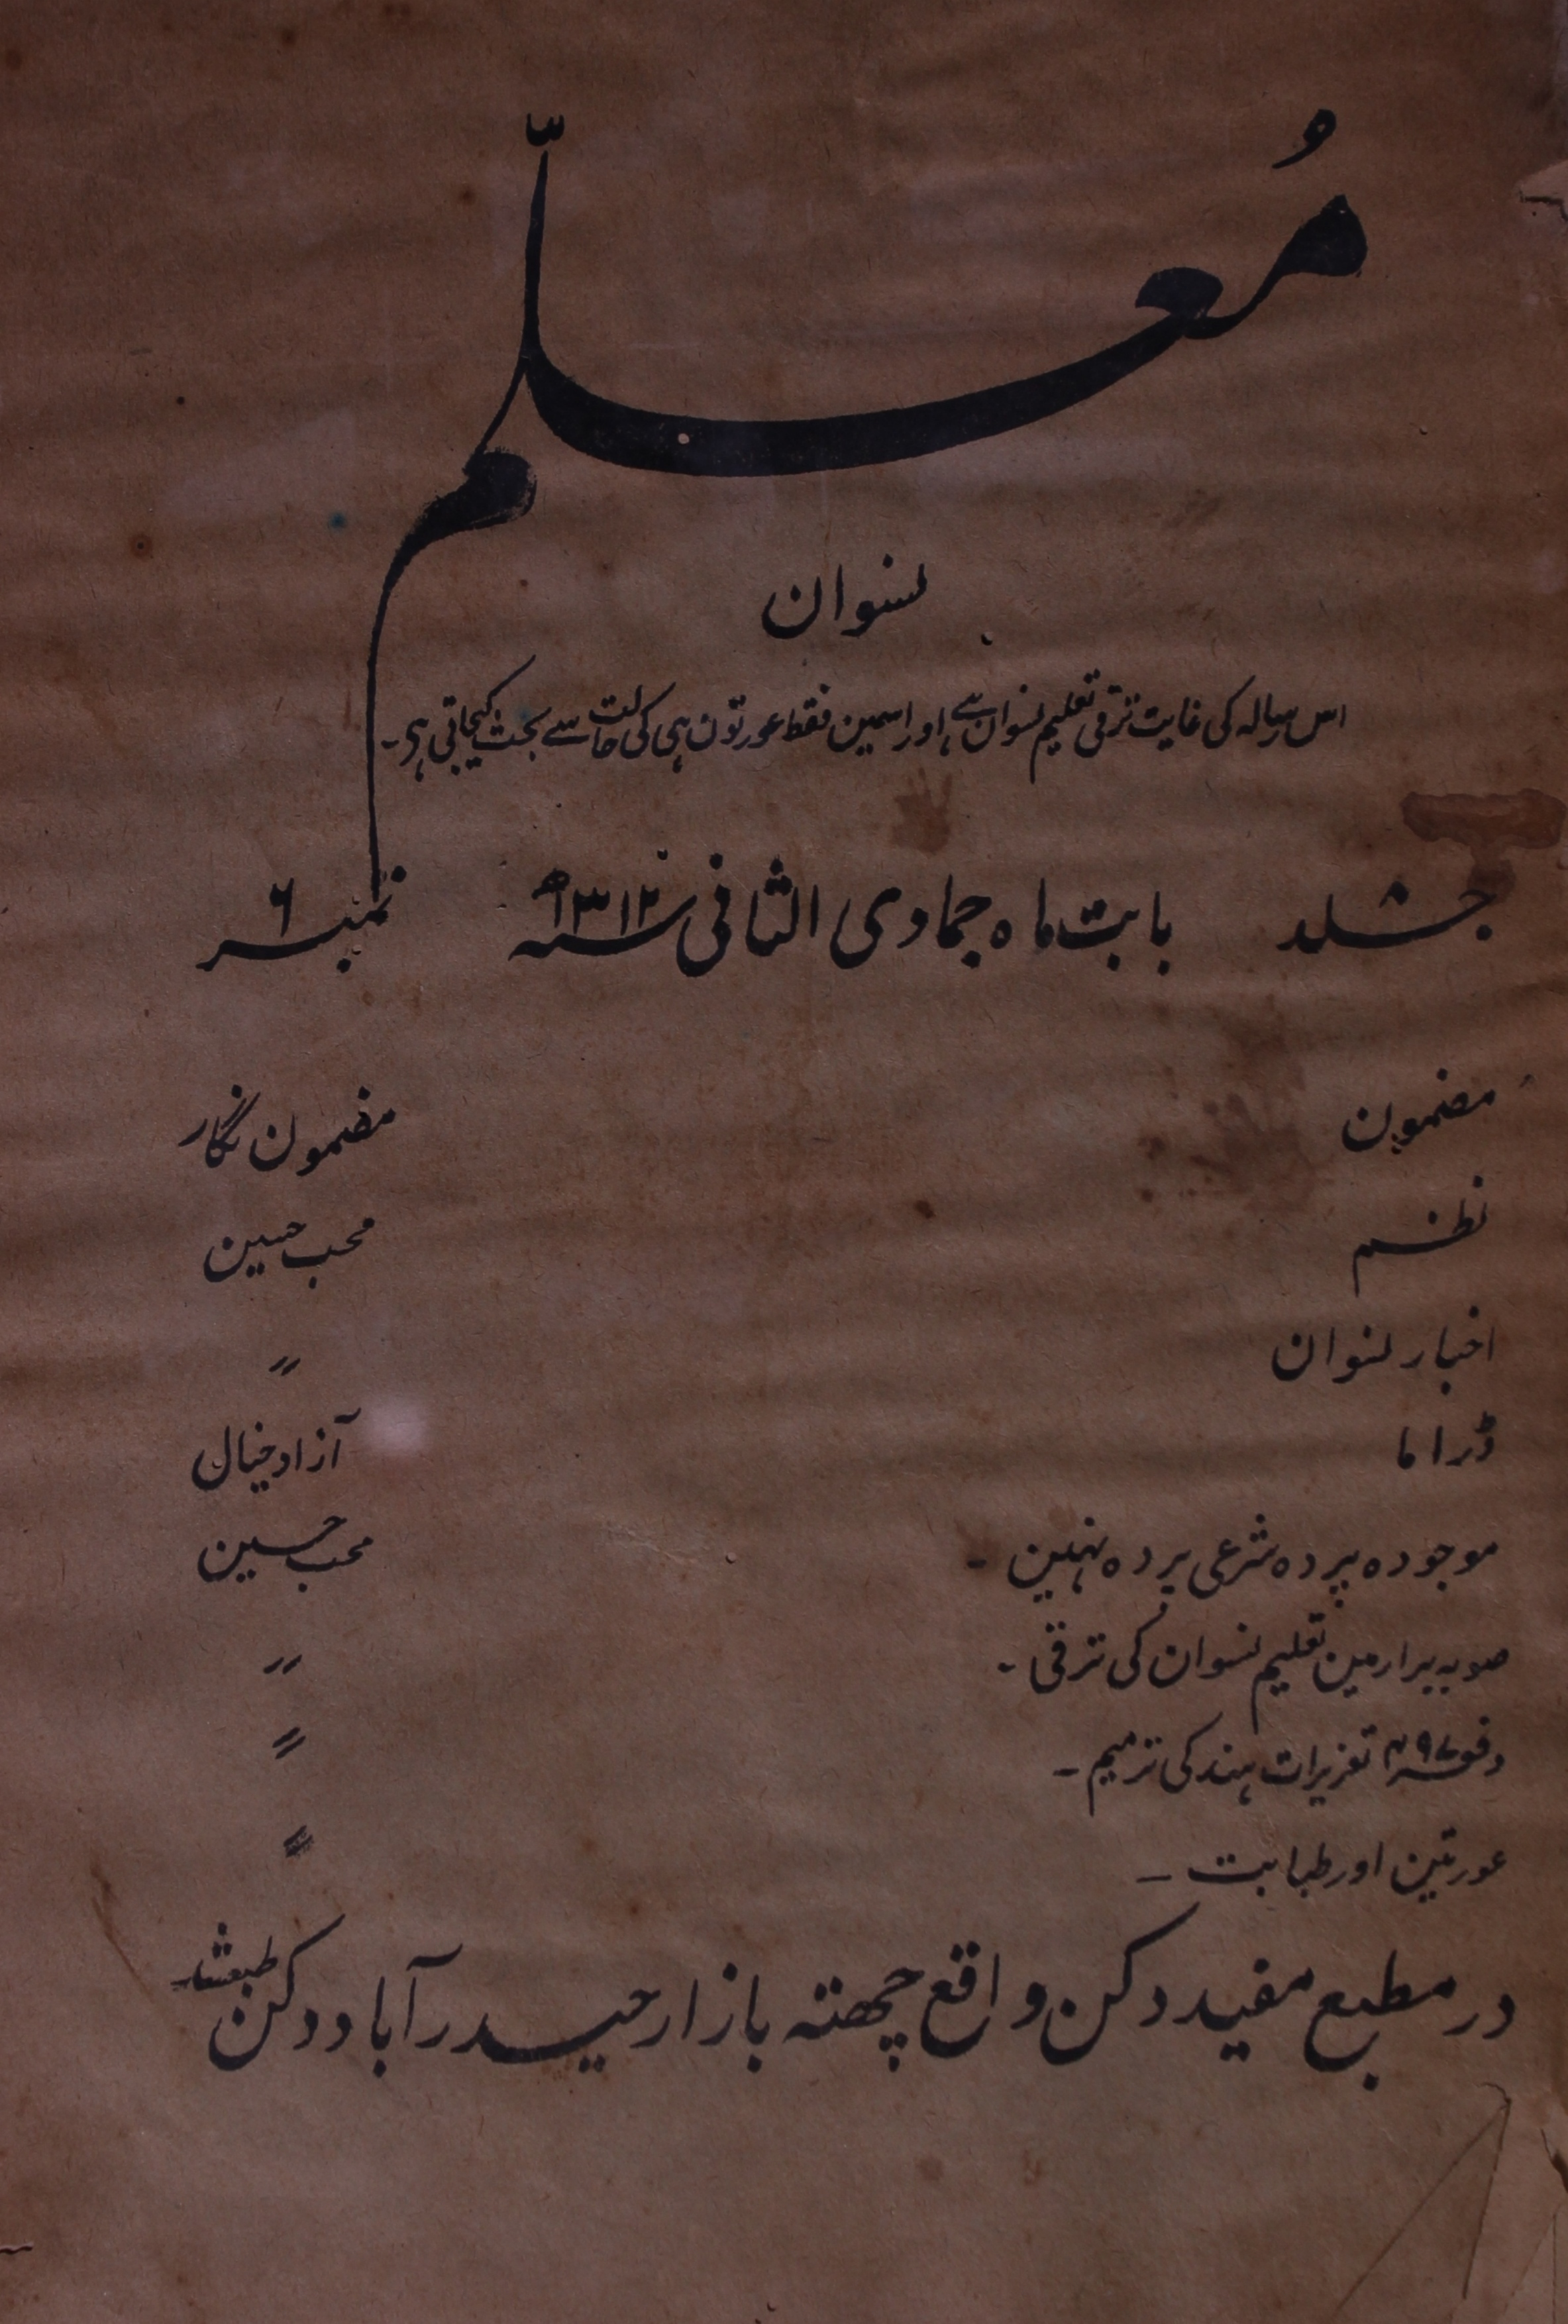 مُعلّم
نسوان
اس رسالہ کی غایت ترقی تعلیم نسوان ہے اور اسمین فقط عورتون ہی کی حالت سے بحث کیجاتی ہی۔
جلد ۸ بابت ماہ جمادی الثانی سنہ ۱۳۱۲ھ نمبر ۶
مضمون مضمون نگار
نظم محب حسین
اخبار نسوان 〃
ڈراما آزاد خیال
موجودہ پردہ شرعی پردہ نہین - محب حسین
صوبہ برار مین تعلیم نسوان کی ترقی - 〃
دفعہ ۴۹۷ تعزیرات ہند کی ترمیم - 〃
عورتین اور طبابت - 〃
در مطبع مفید دکن واقع چھتہ بازار حیدرآباد دکن طبع شد